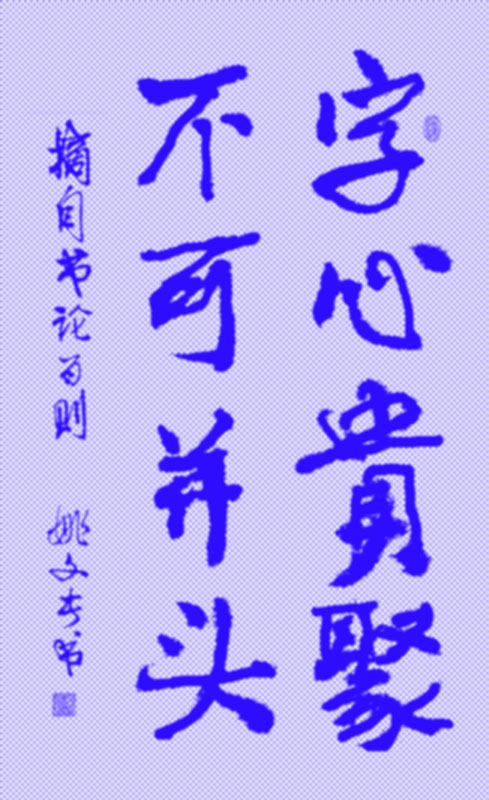 字心貴聚
不可并头
摘自书论百则 姚文书